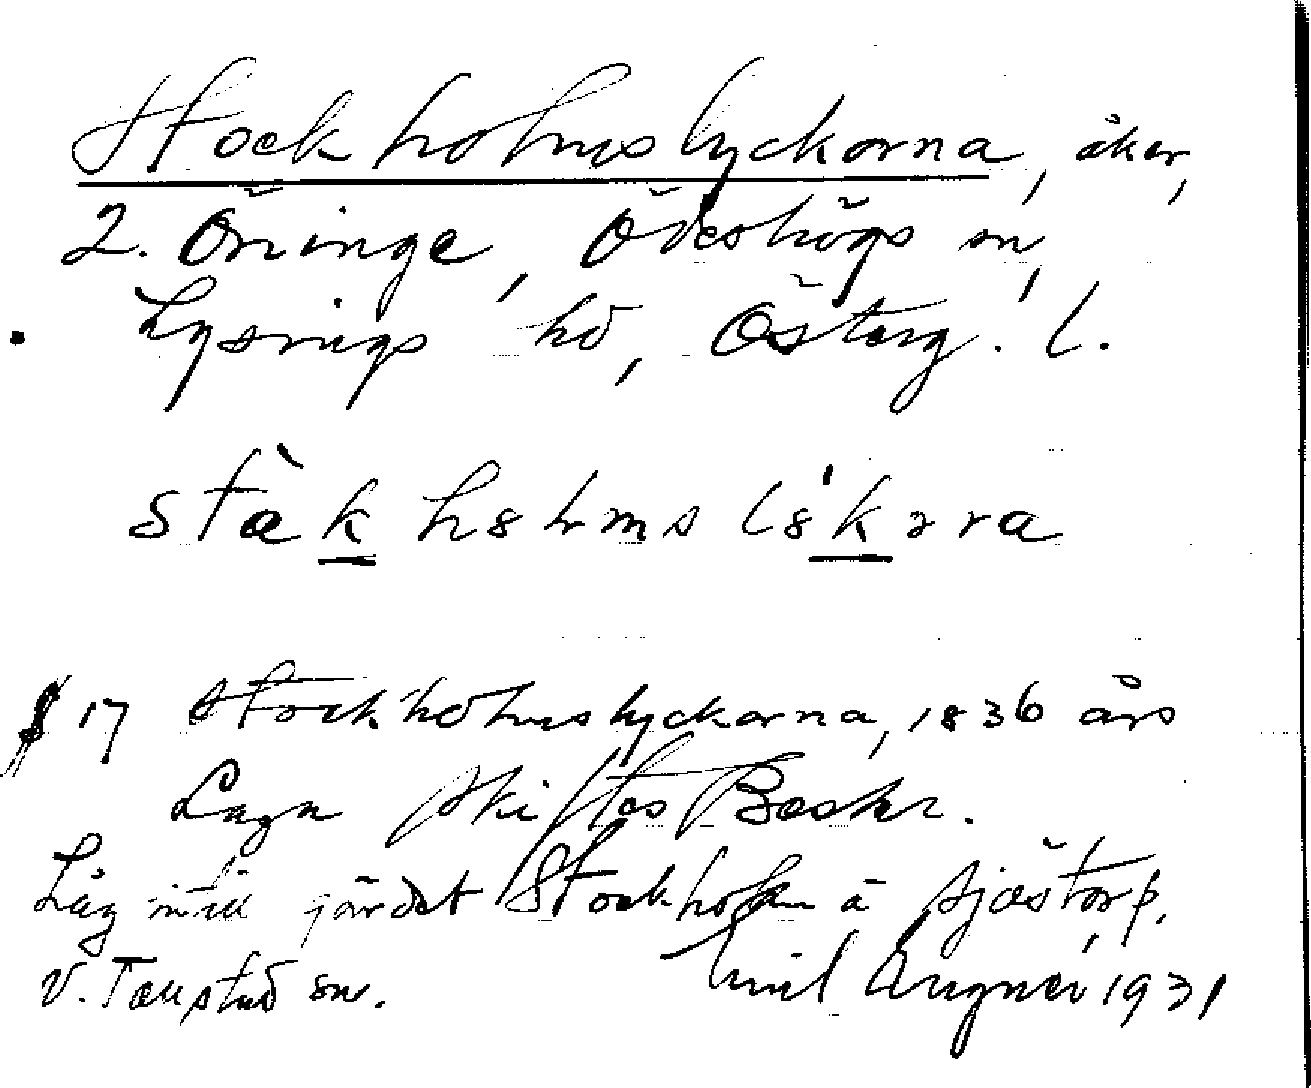 Stockholmslyckorna, åker,
2. Öninge, Ödeshögs sn,
Lysings hd, Österg. l.
stàk hshms lsk ɑrɑ
§ 17 Stockholmslyckorna, 1836 års
Laga skiftes Beskr.
Låg intill gärdet Stockholm å Sjöstorp,
V. Tollstad sn. Emil 1931